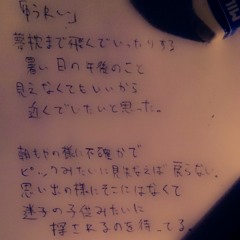 「ゆうれい」
夢枕まで飛んでいったりする
暑い日の午後のこと
見えなくてもいいから
近くでいたいと思った。
朝もやの様に不確かで
ピックみたいに見失なえば 戻らない。
思い出の様にそこにはなくて
迷子の子供みたいに
探されるのを待ってる。